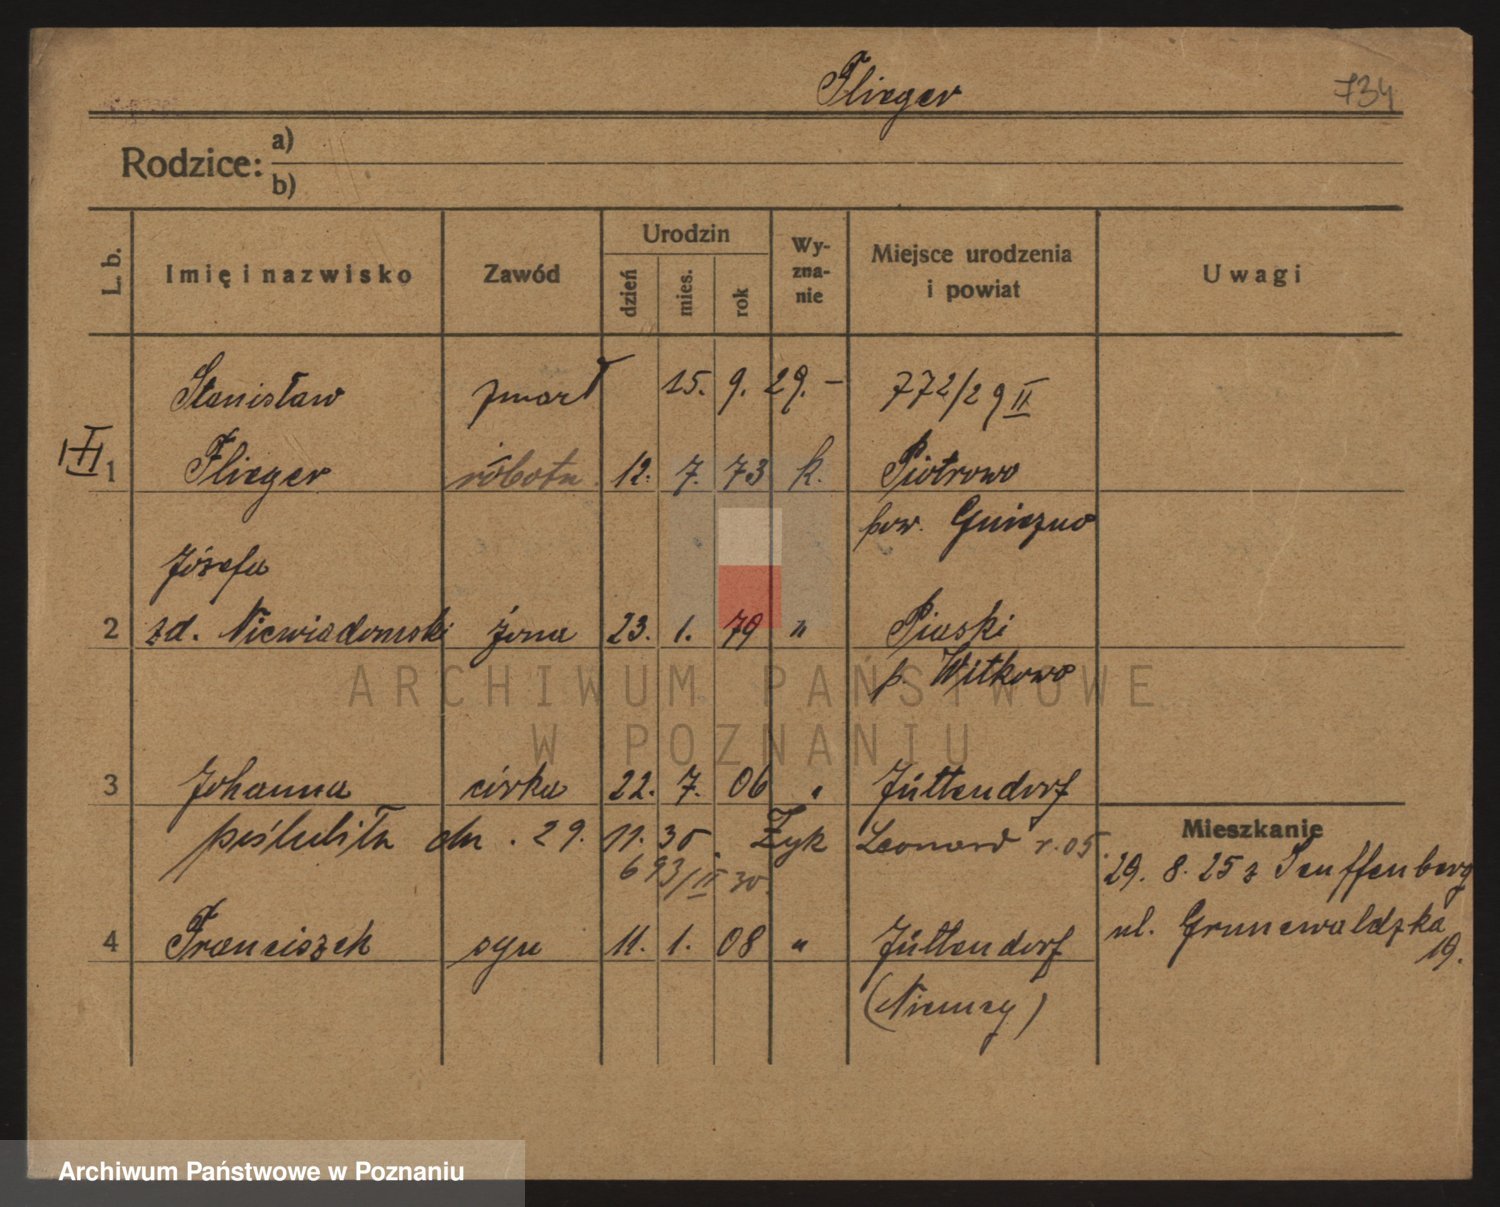 Flieger 734
Rodzice: a)
b)
L. b. Imię i nazwisko Zawód Urodzin dzień mies. rok Wy-zna-nie Miejsce urodzenia i powiat Uwagi
Stanisław zmarł 15. 9. 29. – 772/29 II
1 Flieger robotn. 12. 7. 73 k. Piotrowo
pow. Gniezno
Józefa
2 zd. Niewiadomski żona 23. 1. 79 " Piaski
p. Witkowo
3 Johanna córka 22. 7. 06 " Jüttendorf
poślubiła dn. 29. 11. 30 Żyk Leonard r. 05.
693/II 30
Mieszkanie
29. 8. 25 z Senftenberg
ul. Grunewaldzka
19.
4 Franciszek syn 11. 1. 08 " Jüttendorf
(Niemcy)
ARCHIWUM PAŃSTWOWE
W POZNANIU
Archiwum Państwowe w Poznaniu